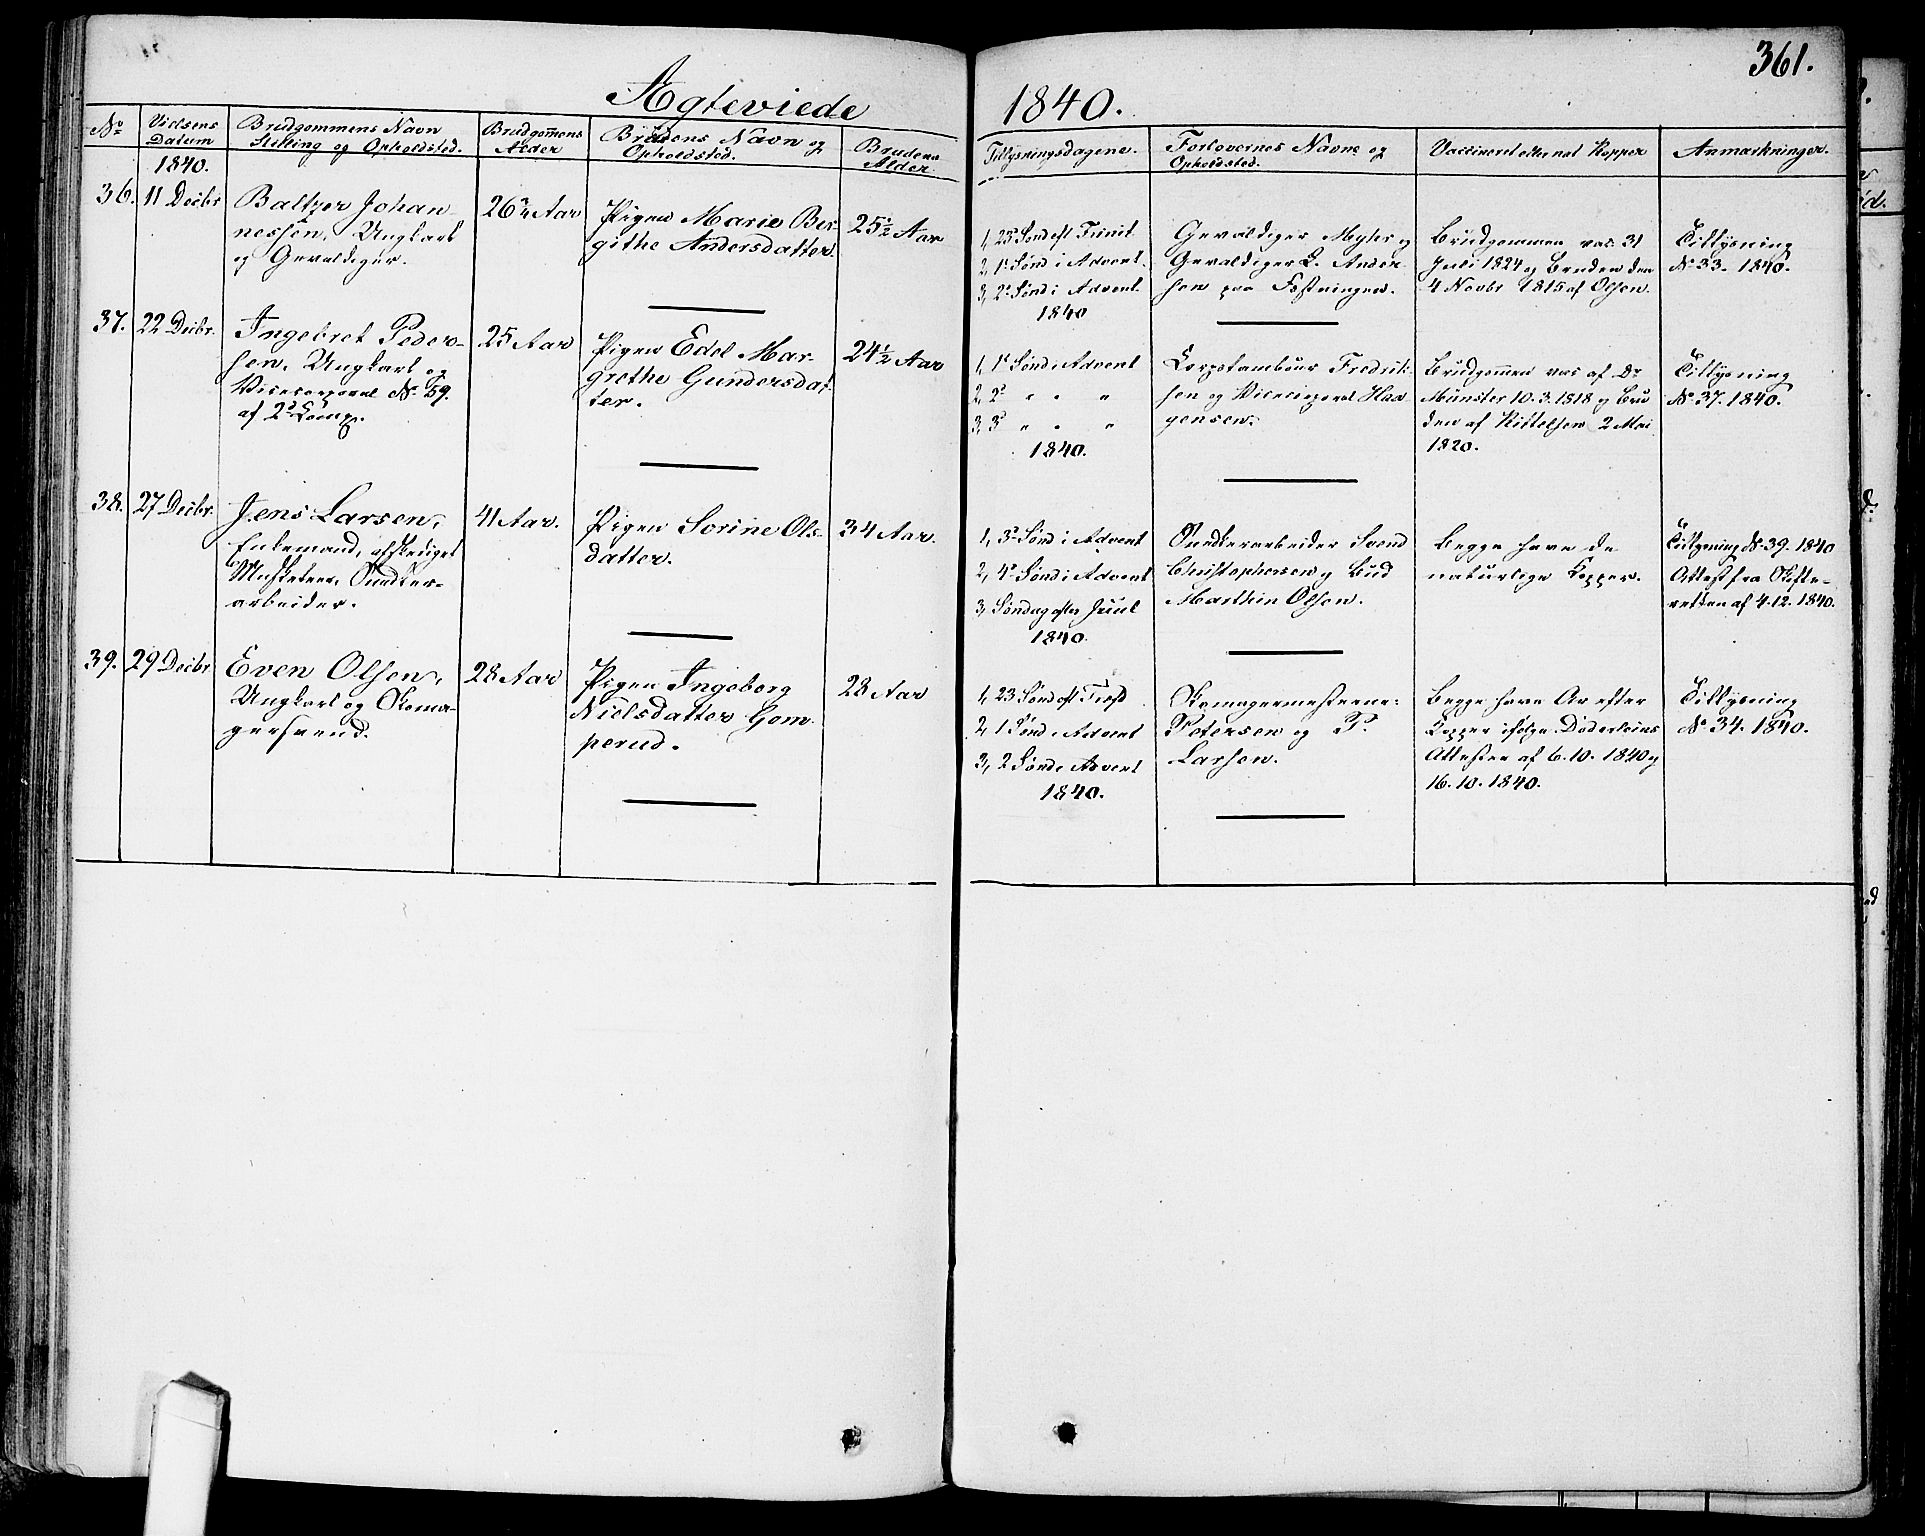 361.
Ægteviede
1840.
No
Vielsens Datum
Brudgommens Navn Stilling og Opholdsted.
Brudgommens Alder
Brudens Navn og Opholdsted.
Brudens Alder
Tillysningsdagene.
Forlovernes Navne og Opholdsted.
Vaccineret eller nat. Kopper
Anmærkninger.
1840.
36. 11 Decbr
Baltzer Johan-
nessen, Ungkarl
og Gevaldiger.
26 3/4 Aar
Pigen Marie Ber-
githe Andersdatter.
25 1/2 Aar
1, 23 Sønd eft Trinit.
2, 1s Sønd i Advent.
3, 2s Sønd i Advent.
1840
Gevaldiger Myler og
Gevaldiger L. Ander-
sen paa Fæstningen.
Brudgommen vac. 31
Juli 1824 og Bruden den
4 Novbr 1815 af Olsen.
Tillysning
No 33. 1840.
37. 22 Decbr.
Ingebret Peder-
sen, Ungkarl og
Vicecorporal No 59.
af 2d Comp.
25 Aar
Pigen Edel Mar-
grethe Gundersdat-
ter.
24 1/2 Aar
1, 1s Sønd i Advent
2, 2s " " "
3, 3s " " "
1840.
Corpstambour Fredrik-
sen og Vicecorporal Haa-
gensen.
Brudgommen vac af Dr
Münster 10.3.1818 og Bru
den af Kittelsen 2 Mai
1820.
Tillysning
No 37. 1840.
38. 27 Decbr.
Jens Larsen,
Enkemand, afskediget
Musketeer, Sundker-
arbeider.
41 Aar.
Pigen Sorine Ols-
datter.
34 Aar.
1, 3s Sønd i Advent
2, 4s Sønd i Advent
3, Søndag efter Juul
1840.
Sundkerarbeider Svend
Christophersen og Bud
Marthin Olsen.
Begge have de
naturlige Kopper.
Tillysning No 39. 1840
Attest fra Skifte-
retten af 4.12.1840.
39. 29 Decbr
Even Olsen,
Ungkarl og Skoma-
gersvend.
28 Aar
Pigen Ingeborg
Nielsdatter Gom-
perud.
28 Aar
1, 23 Sønd eft Tref
2, 1 Sønd i Advent
3, 2 Sønd i Advent
1840.
Skomagermesterne-
Petersen og P.
Larsen.
Begge have Ar efter
Kopper ifølge Døderleins
Attester af 6.10.1840 og
16.10.1840.
Tillysning
No 34. 1840.